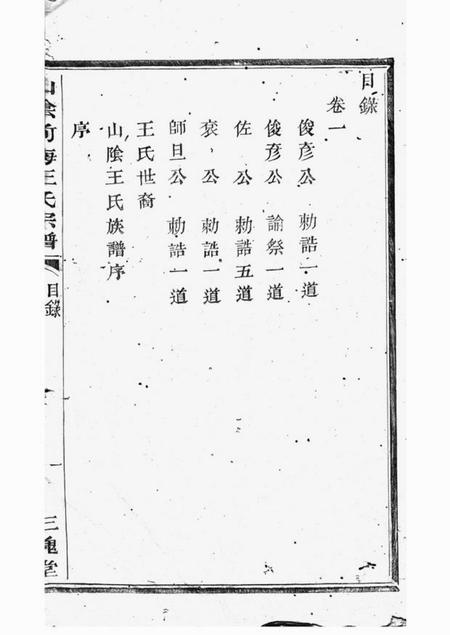 目錄
卷一
俊彥公 勅誥一道
俊彥公 諭祭一道
佐公 勅誥五道
袞公 勅誥一道
師旦公 勅誥一道
王氏世裔
山陰王氏族譜序
序
山陰前梅王氏宗譜
目錄
一
三槐堂